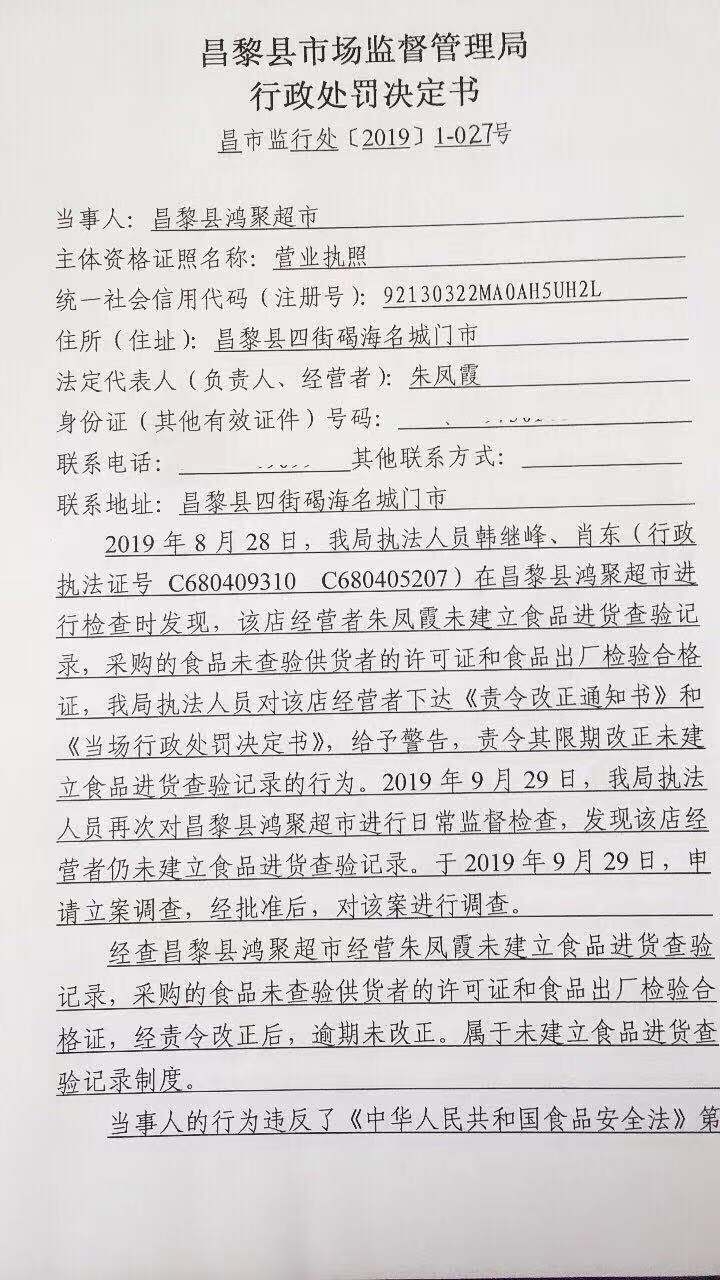 昌黎县市场监督管理局
行政处罚决定书
昌市监行处〔2019〕1-027号
当事人：昌黎县鸿聚超市
主体资格证照名称：营业执照
统一社会信用代码（注册号）：92130322MA0AH5UH2L
住所（住址）：昌黎县四街碣海名城门市
法定代表人（负责人、经营者）：朱凤霞
身份证（其他有效证件）号码：
联系电话： 其他联系方式：
联系地址：昌黎县四街碣海名城门市
2019 年 8 月 28 日，我局执法人员韩继峰、肖东（行政
执法证号 C680409310 C680405207）在昌黎县鸿聚超市进
行检查时发现，该店经营者朱凤霞未建立食品进货查验记
录，采购的食品未查验供货者的许可证和食品出厂检验合格
证，我局执法人员对该店经营者下达《责令改正通知书》和
《当场行政处罚决定书》，给予警告，责令其限期改正未建
立食品进货查验记录的行为。2019 年 9 月 29 日，我局执法
人员再次对昌黎县鸿聚超市进行日常监督检查，发现该店经
营者仍未建立食品进货查验记录。于 2019 年 9 月 29 日，申
请立案调查，经批准后，对该案进行调查。
经查昌黎县鸿聚超市经营朱凤霞未建立食品进货查验
记录，采购的食品未查验供货者的许可证和食品出厂检验合
格证，经责令改正后，逾期未改正。属于未建立食品进货查
验记录制度。
当事人的行为违反了《中华人民共和国食品安全法》第